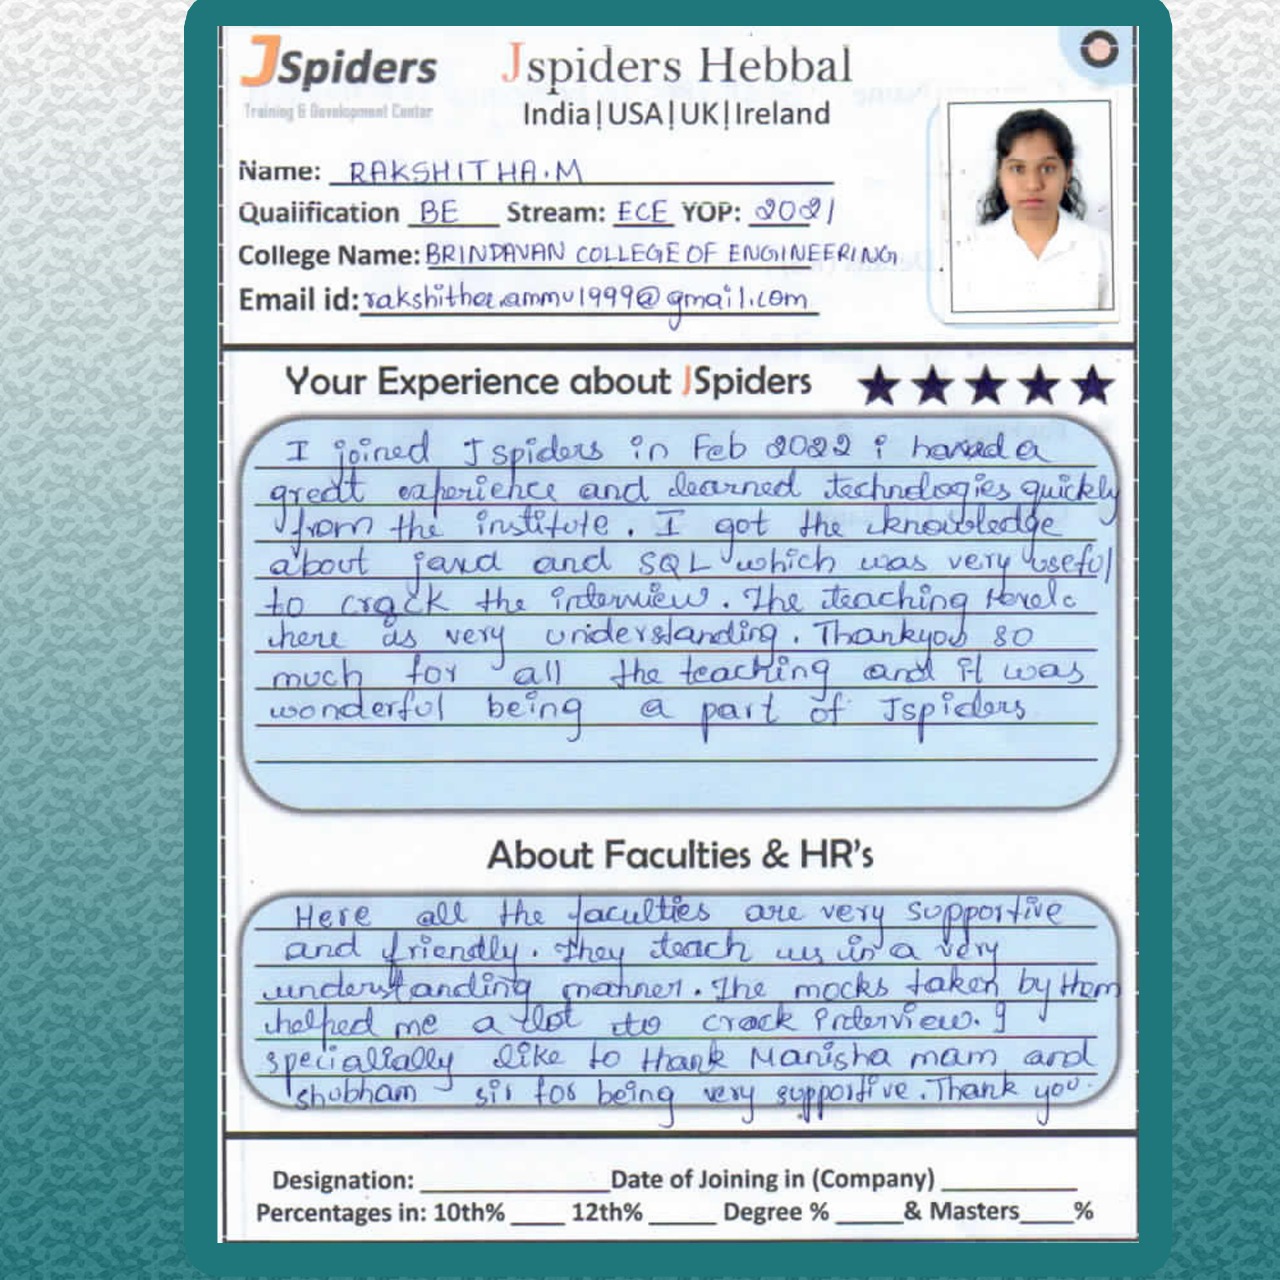 JSpiders
Training & Development Center
Jspiders Hebbal
India|USA|UK|Ireland
Name: RAKSHITHA.M
Qualification BE Stream: ECE YOP: 2021
College Name: BRINDAVAN COLLEGE OF ENGINEERING
Email id: rakshitha.ammu1999@gmail.com
Your Experience about JSpiders
I joined Jspiders in Feb 2022 i haved a
great experience and learned technologies quickly
from the institute. I got the knowledge
about java and SQL which was very useful
to crack the interview. The teaching
here is very understanding. Thankyou so
much for all the teaching and it was
wonderful being a part of Jspiders
About Faculties & HR's
Here all the faculties are very supportive
and friendly. They teach us in a very
understanding manner. The mocks taken by them
helped me a lot to crack interview. I
specialially like to thank Manisha mam and
shubham sir for being very supportive. Thank you.
Designation: Date of Joining in (Company)
Percentages in: 10th% 12th% Degree % & Masters %